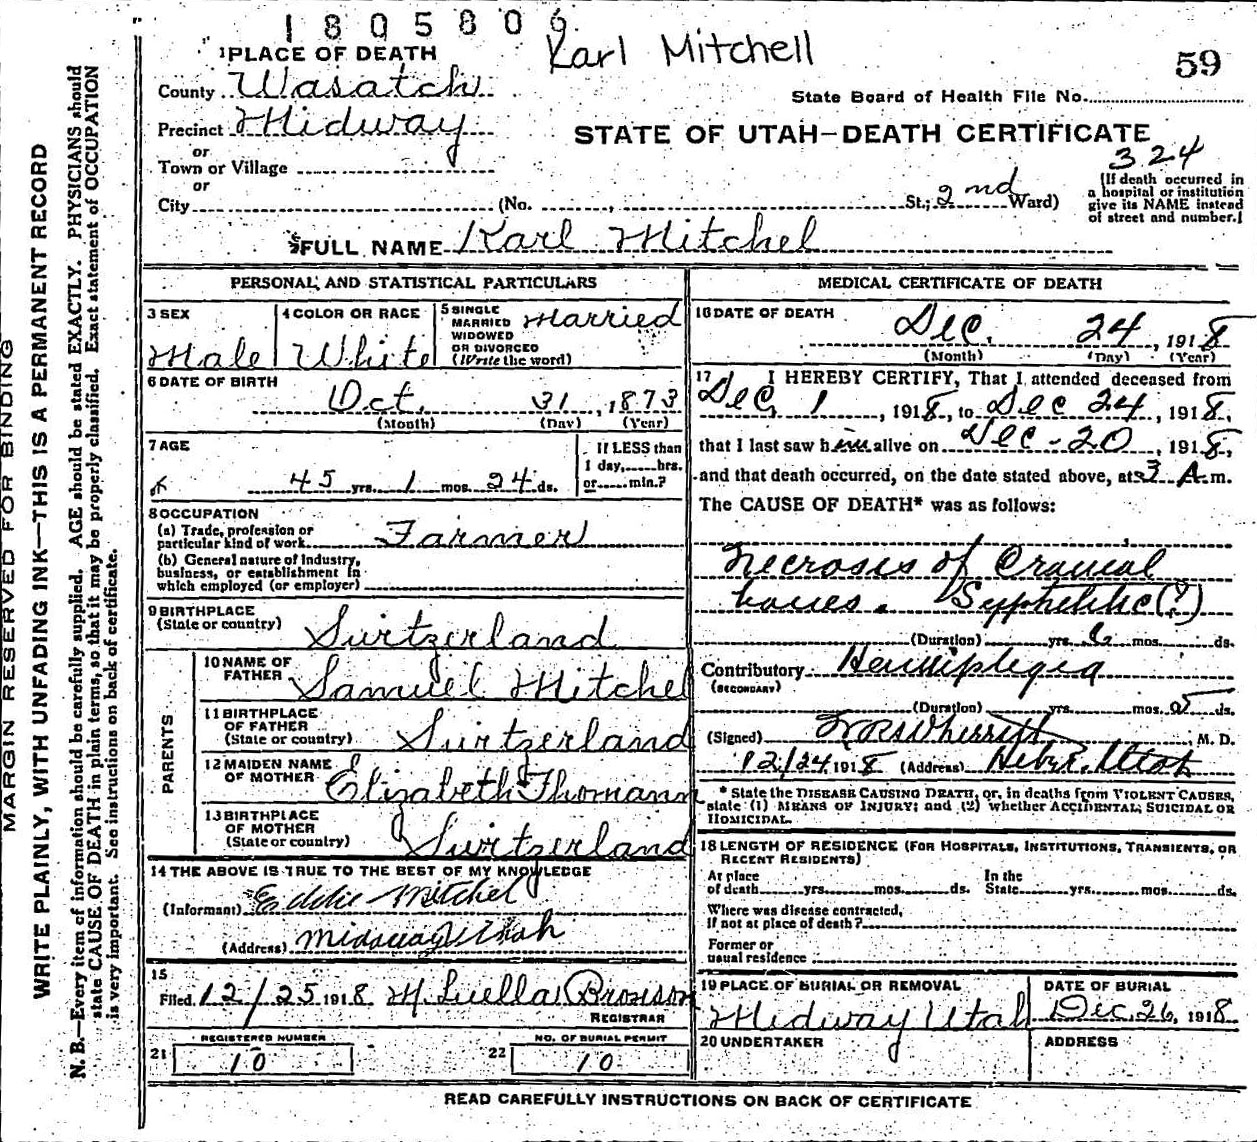 1805806
Karl Mitchell
59
1 PLACE OF DEATH
County Wasatch
State Board of Health File No.
Precinct Midway
STATE OF UTAH—DEATH CERTIFICATE
or
324
Town or Village
or
City (No. , St.; 2nd Ward)
(If death occurred in
a hospital or institution
give its NAME instead
of street and number.)
FULL NAME Karl Mitchel
PERSONAL AND STATISTICAL PARTICULARS
3 SEX
Male
4 COLOR OR RACE
White
5 SINGLE
MARRIED
WIDOWED
OR DIVORCED
(Write the word)
Married
6 DATE OF BIRTH
Oct. 31, 1873
(Month) (Day) (Year)
7 AGE
45 yrs. 1 mos. 24 ds.
If LESS than
1 day, hrs.
or min.?
8 OCCUPATION
(a) Trade, profession or
particular kind of work. Farmer
(b) General nature of Industry,
business, or establishment in
which employed (or employer)
9 BIRTHPLACE
(State or country) Switzerland
PARENTS
10 NAME OF
FATHER Samuel Mitchel
11 BIRTHPLACE
OF FATHER
(State or country) Switzerland
12 MAIDEN NAME
OF MOTHER Elizabeth Thomann
13 BIRTHPLACE
OF MOTHER
(State or country) Switzerland
14 THE ABOVE IS TRUE TO THE BEST OF MY KNOWLEDGE
(Informant) Eddie Mitchel
(Address) Midway Utah
15
Filed 12/25 1918 M. Luella Bronson
REGISTRAR
REGISTERED NUMBER
21 10
NO. OF BURIAL PERMIT
22 10
MEDICAL CERTIFICATE OF DEATH
16 DATE OF DEATH
Dec. 24, 1918
(Month) (Day) (Year)
17 I HEREBY CERTIFY, That I attended deceased from
Dec. 1, 1918, to Dec 24, 1918,
that I last saw him alive on Dec-20, 1918,
and that death occurred, on the date stated above, at 3 A.m.
The CAUSE OF DEATH* was as follows:
Necrosis of Cranial
bones. Syphilitic (?)
(Duration) yrs. 6 mos. ds.
Contributory Hemiplegia
(SECONDARY)
(Duration) yrs. mos. 5 ds.
(Signed) Wherritt M. D.
12/24 1918 (Address) Heber, Utah
* State the DISEASE CAUSING DEATH, or, in deaths from VIOLENT CAUSES,
state (1) MEANS OF INJURY; and (2) whether ACCIDENTAL, SUICIDAL OR
HOMICIDAL.
18 LENGTH OF RESIDENCE (FOR HOSPITALS, INSTITUTIONS, TRANSIENTS, OR
RECENT RESIDENTS)
At place
of death yrs. mos. ds.
In the
State yrs. mos. ds.
Where was disease contracted,
if not at place of death?
Former or
usual residence
19 PLACE OF BURIAL OR REMOVAL
Midway Utah
DATE OF BURIAL
Dec. 26, 1918
20 UNDERTAKER
ADDRESS
READ CAREFULLY INSTRUCTIONS ON BACK OF CERTIFICATE
MARGIN RESERVED FOR BINDING
WRITE PLAINLY, WITH UNFADING INK—THIS IS A PERMANENT RECORD
N. B.—Every item of information should be carefully supplied. AGE should be stated EXACTLY. PHYSICIANS should
state CAUSE OF DEATH in plain terms, so that it may be properly classified. Exact statement of OCCUPATION
is very important. See instructions on back of certificate.